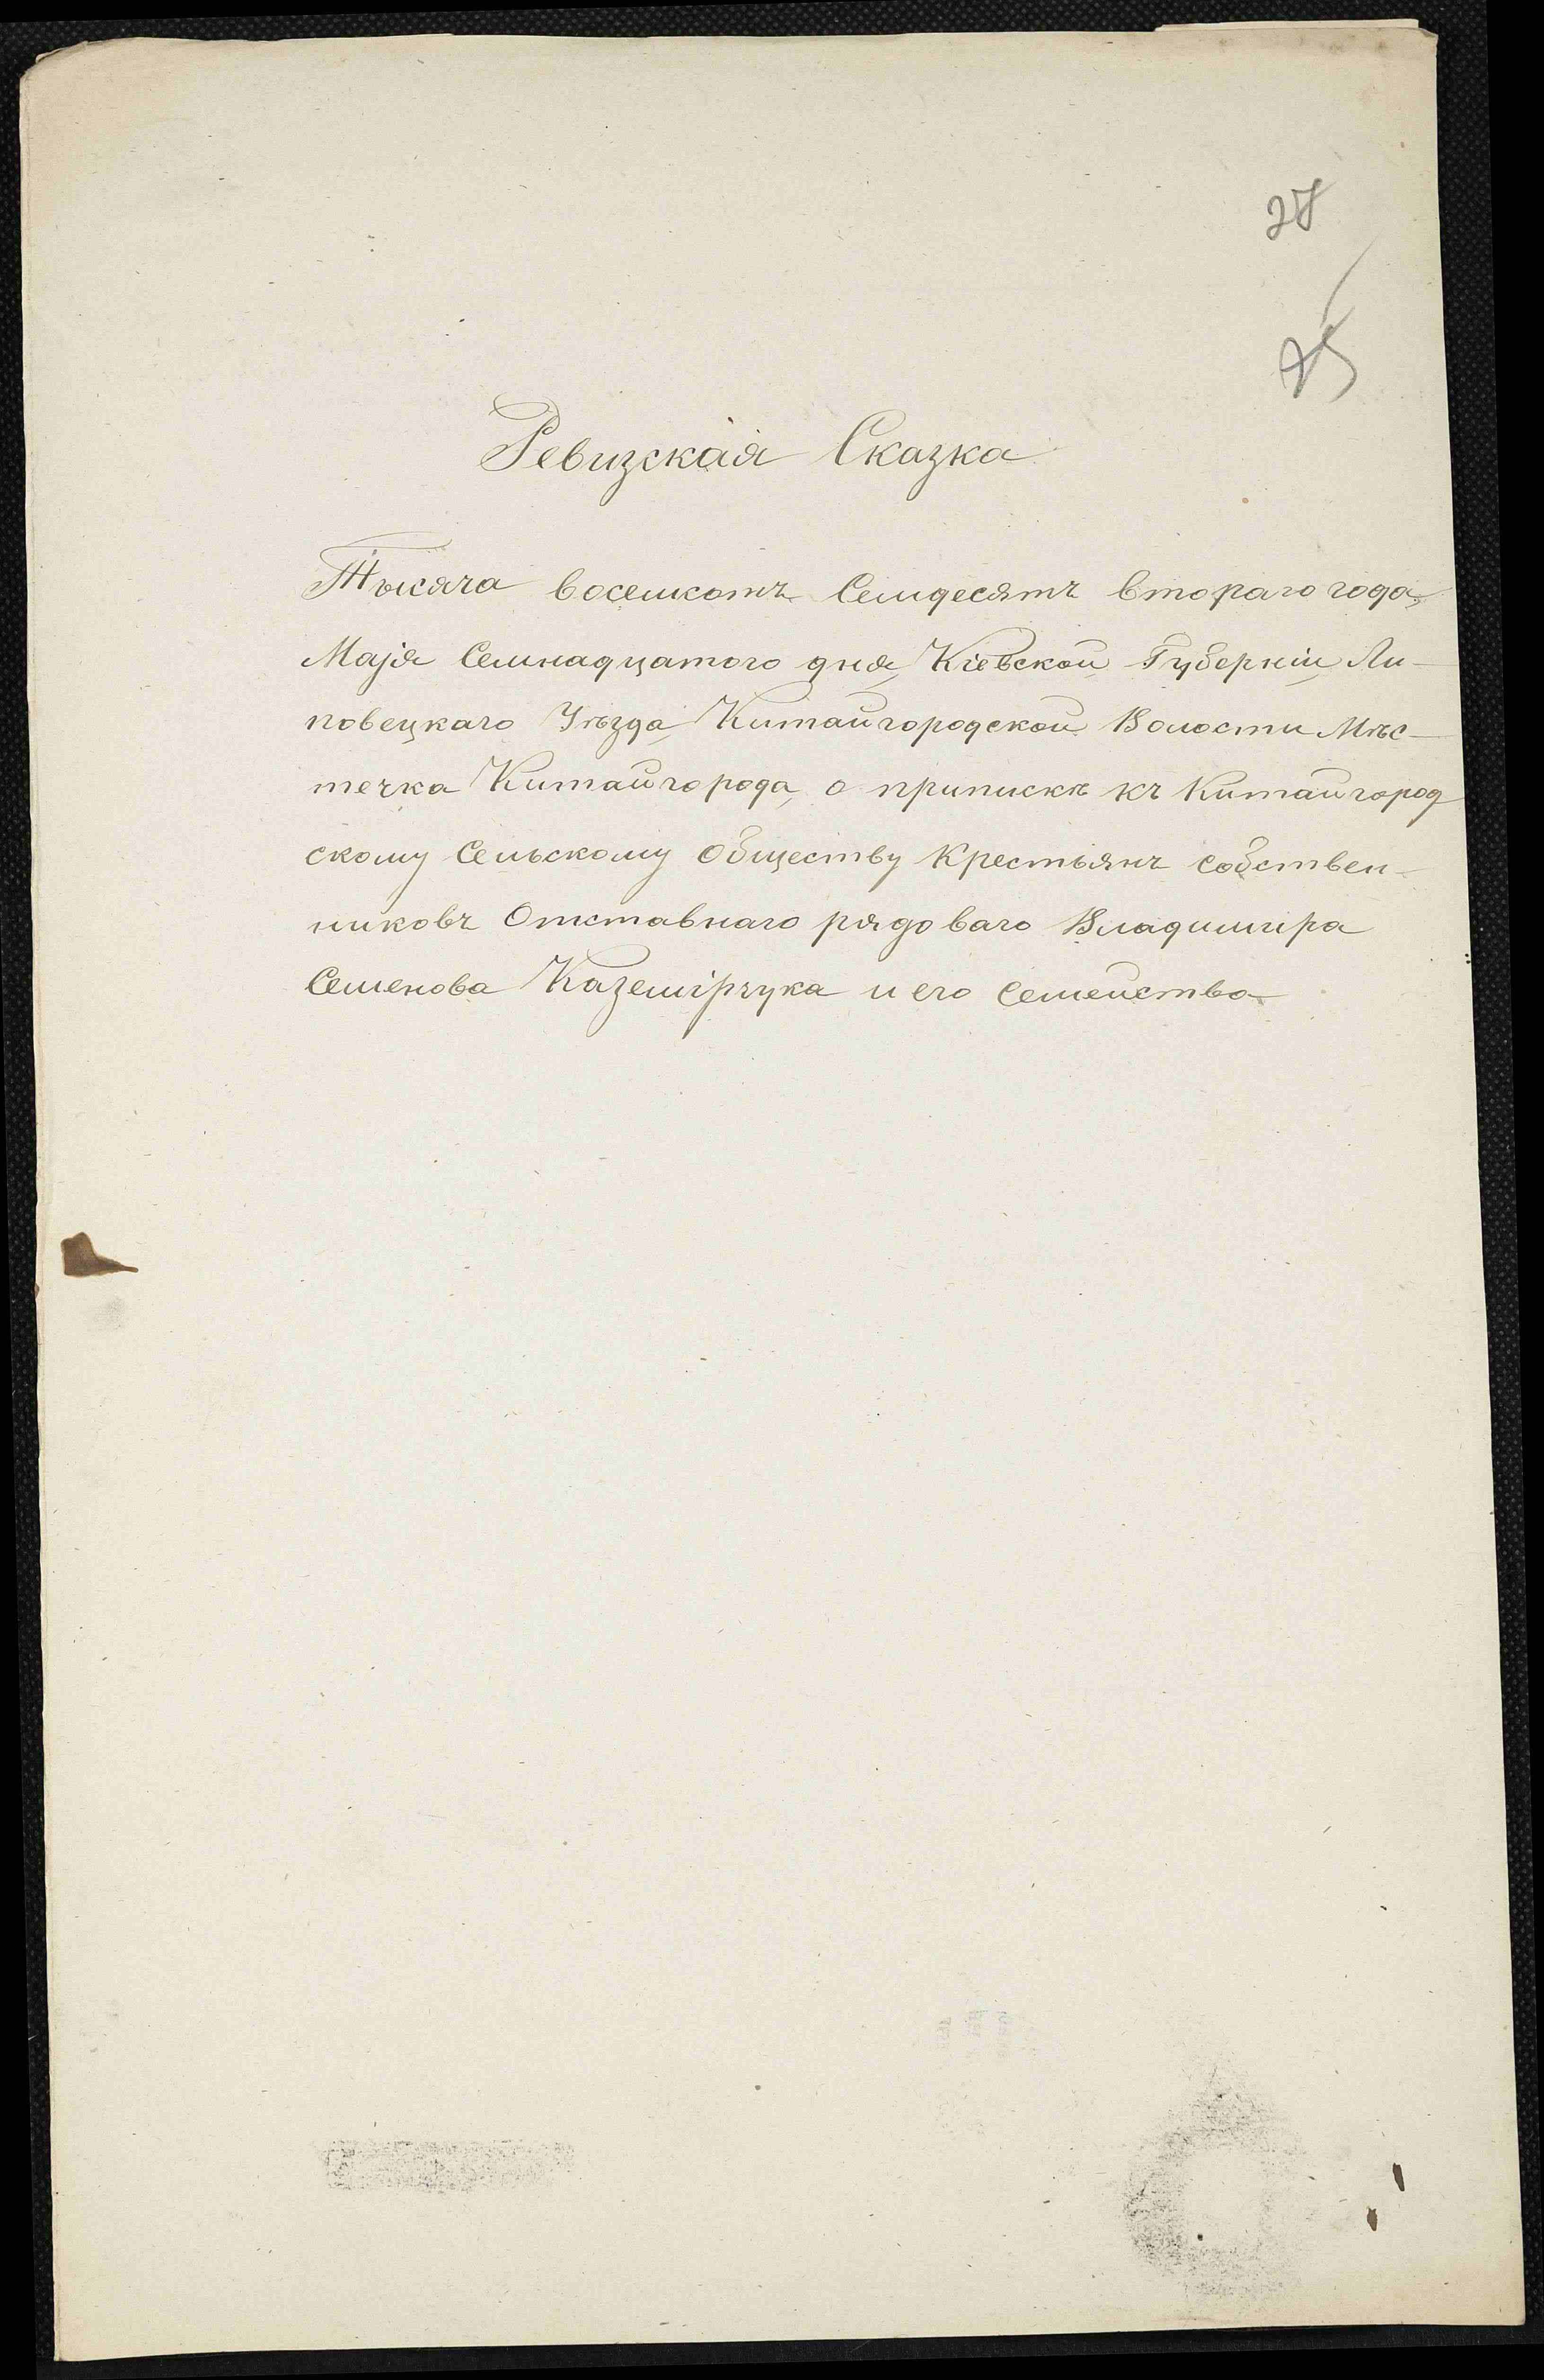 27
25
Ревизская Сказка
Тысяча восемсотъ Семдесятъ втораго года,
Маія Семнадцатого дня, Кіевской Губерніи, Ли-
повецкаго Уѣзда, Китайгородской Волости Мѣс-
течка Китайгорода, о припискѣ къ Китайгород
скому Сельскому Обществу Крестьянъ собствен-
никовъ Отставнаго рядоваго Владиміра
Семенова Каземірчука и его семейства